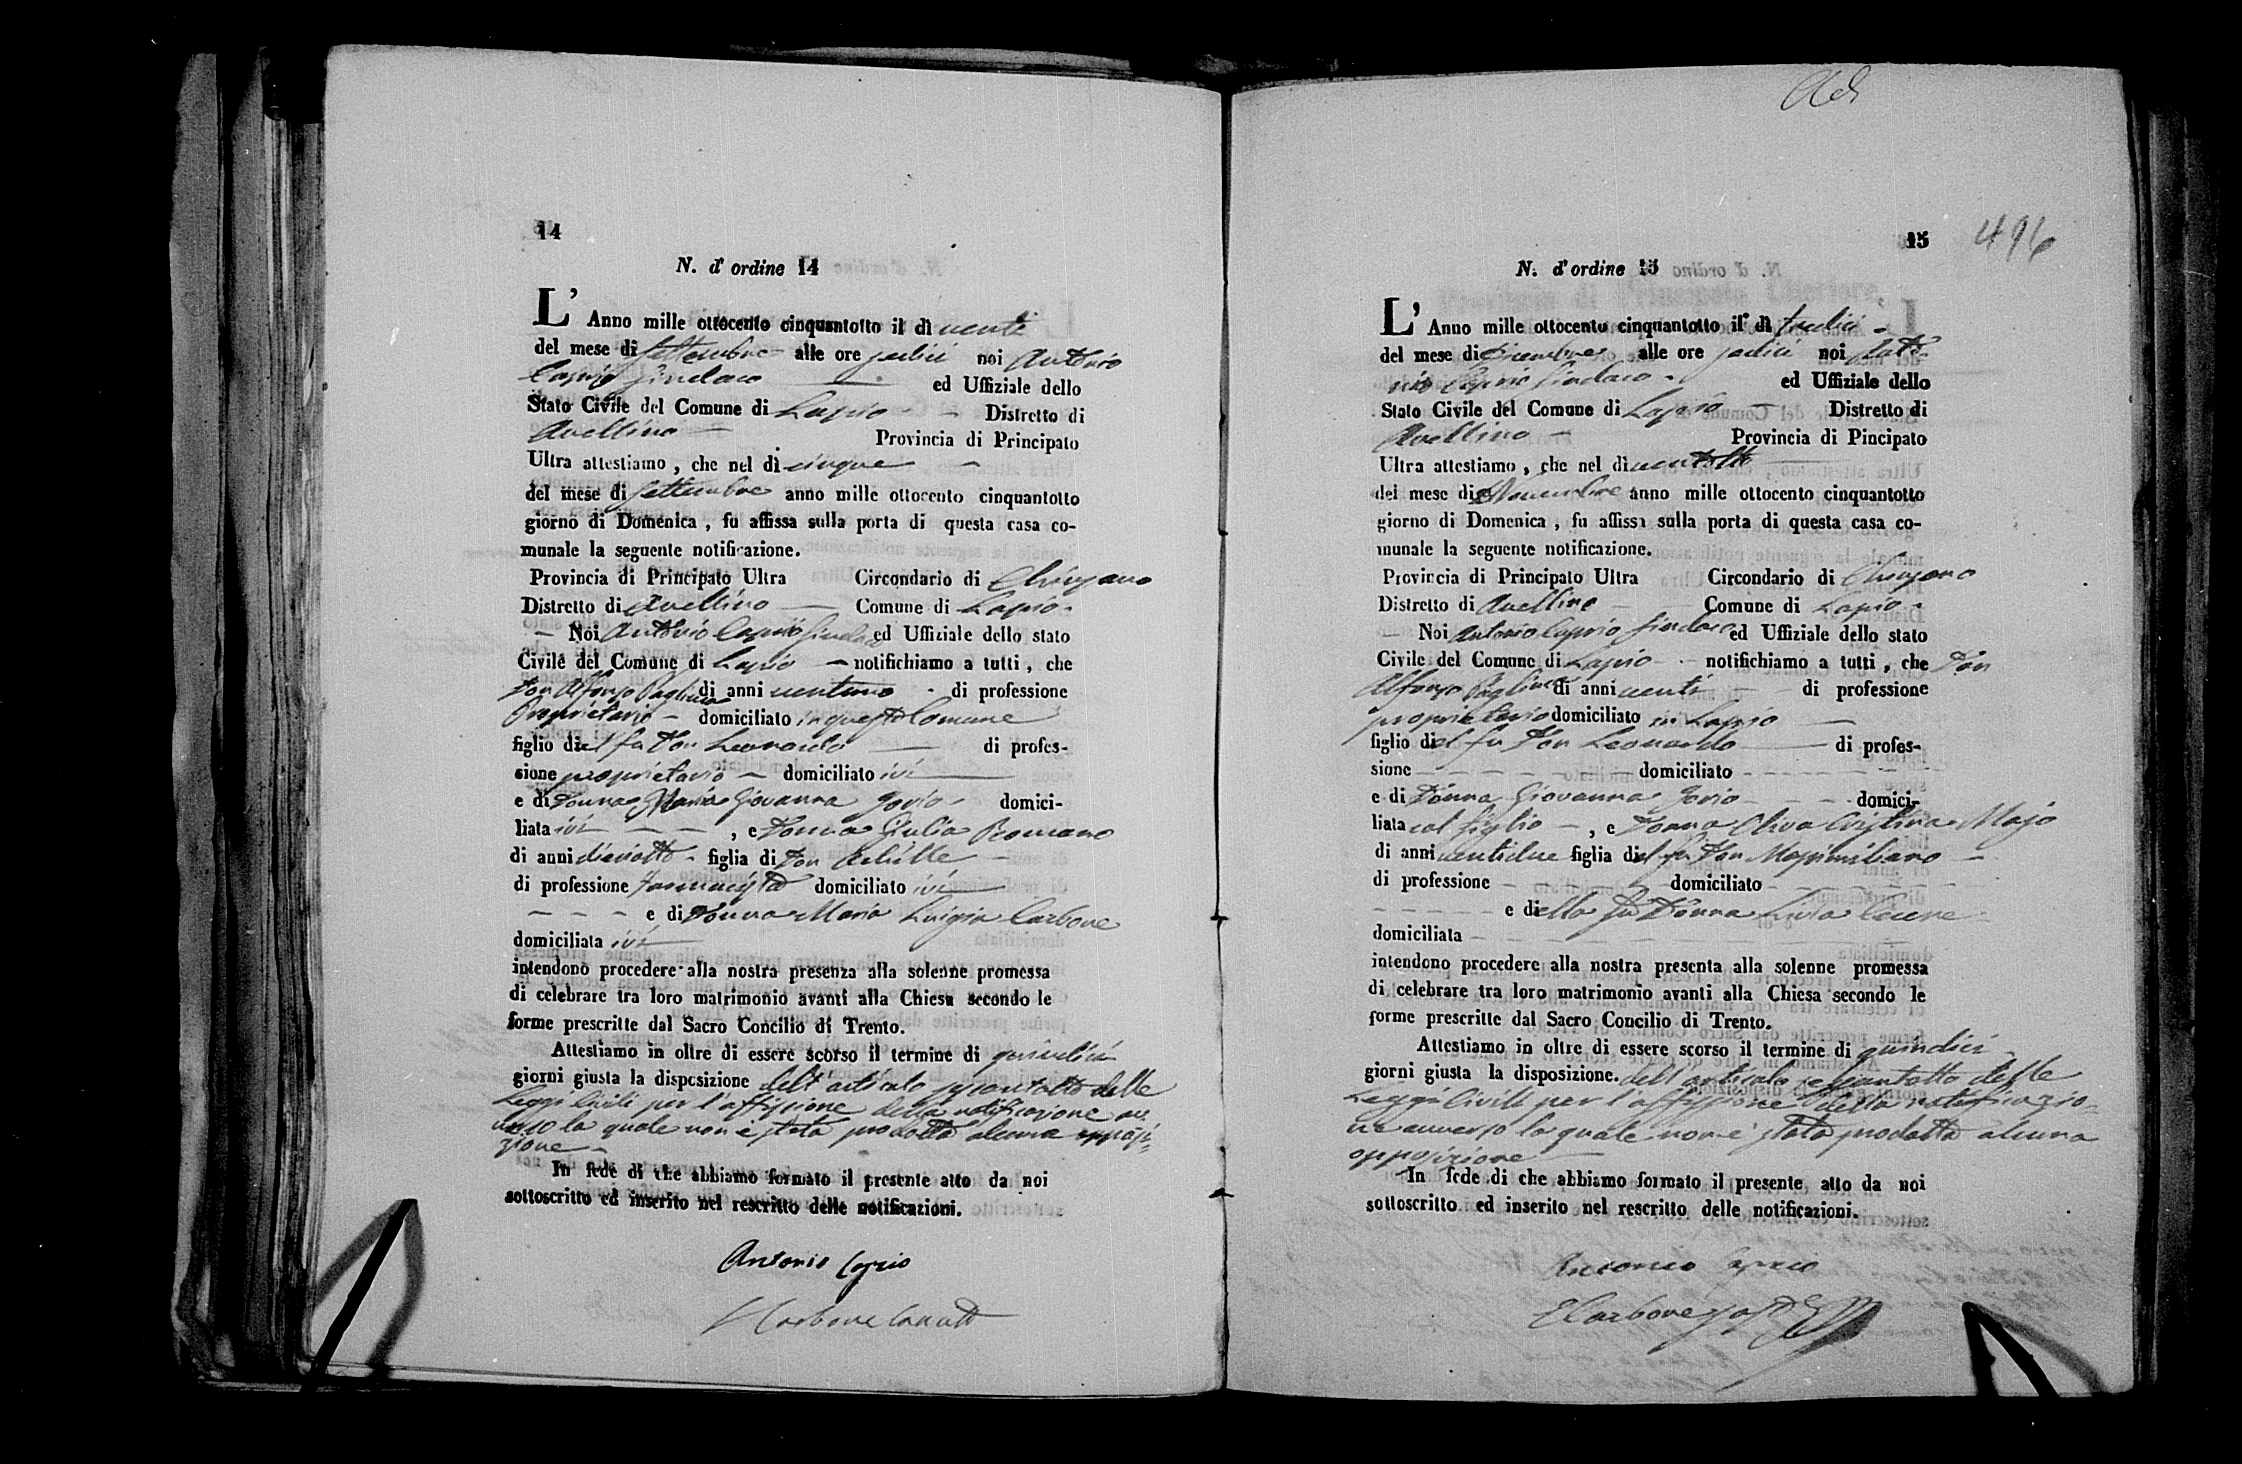 14
N. d' ordine 14
L' Anno mille ottocento cinquantotto il dì venti
del mese di Settembre alle ore sedici noi Antonio
Caprio Sindaco ed Uffiziale dello
Stato Civile del Comune di Lapio Distretto di
Avellino Provincia di Principato
Ultra attestiamo , che nel dì cinque
del mese di Settembre anno mille ottocento cinquantotto
giorno di Domenica , fu affissa sulla porta di questa casa co-
munale la seguente notificazione.
Provincia di Principato Ultra Circondario di Chiusano
Distretto di Avellino Comune di Lapio
Noi Antonio Caprio Sindaco ed Uffiziale dello stato
Civile del Comune di Lapio notifichiamo a tutti , che
Don Alfonso Pagliuca di anni ventuno di professione
Proprietario domiciliato in questo Comune
figlio del fu Don Leonardo di profes-
sione proprietario domiciliato ivi
e di Donna Maria Giovanna Jovio domici-
liata ivi , e Donna Giulia Romano
di anni dieciotto figlia di Don Achille
di professione Farmacista domiciliato ivi
e di Donna Maria Luigia Carbone
domiciliata ivi
intendono procedere alla nostra presenza alla solenne promessa
di celebrare tra loro matrimonio avanti alla Chiesa secondo le
forme prescritte dal Sacro Concilio di Trento.
Attestiamo in oltre di essere scorso il termine di quindici
giorni giusta la disposizione dell'articolo sessantotto delle
Leggi Civili per l'affissione della notificazione av
verso la quale non è stata prodotta alcuna opposi-
zione
In fede di che abbiamo formato il presente atto da noi
sottoscritto ed inserito nel rescritto delle notificazioni.
Antonio Caprio
Carbone
Ad
15
496
N. d' ordine 15
L' Anno mille ottocento cinquantotto il dì tredici
del mese di Dicembre alle ore sedici noi Anto-
nio Caprio Sindaco ed Uffiziale dello
Stato Civile del Comune di Lapio Distretto di
Avellino Provincia di Pincipato
Ultra attestiamo , che nel dì ventotto
del mese di Novembre anno mille ottocento cinquantotto
giorno di Domenica , fu affissa sulla porta di questa casa co-
munale la seguente notificazione.
Provincia di Principato Ultra Circondario di Chiusano
Distretto di Avellino Comune di Lapio
Noi Antonio Caprio Sindaco ed Uffiziale dello stato
Civile del Comune di Lapio notifichiamo a tutti , che Don
Alfonso Pagliuca di anni venti di professione
proprietario domiciliato in Lapio
figlio del fu Don Leonardo di profes-
sione domiciliato
e di Donna Giovanna Jovio domici-
liata col figlio , e Donna Oliva Cristina Majo
di anni ventidue figlia del fu Don Massimiliano
di professione domiciliato
e della fu Donna Livia
domiciliata
intendono procedere alla nostra presenta alla solenne promessa
di celebrare tra loro matrimonio avanti alla Chiesa secondo le
forme prescritte dal Sacro Concilio di Trento.
Attestiamo in oltre di essere scorso il termine di quindici
giorni giusta la disposizione. dell'articolo sessantotto delle
Leggi Civili per l'affissione della notificazio-
ne avverso la quale non è stata prodotta alcuna
opposizione
In fede di che abbiamo formato il presente atto da noi
sottoscritto ed inserito nel rescritto delle notificazioni.
Antonio Caprio
Carbone